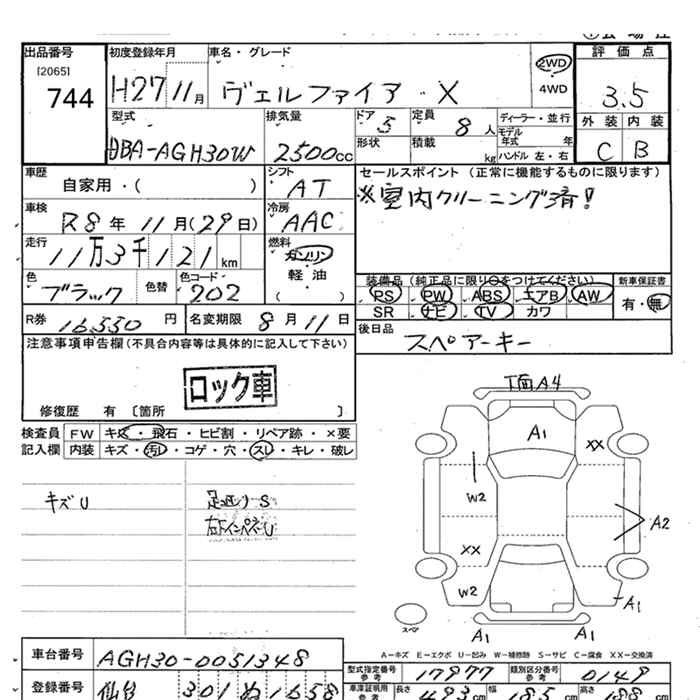 出品番号 初度登録年月 車名・グレード 評価点
[2065]
744 H27 11月 ヴェルファイア X 2WD 4WD 3.5
型式 排気量 ドア 5 定員 8人 ディーラー・並行 外装 内装
DBA-AGH30W 2500cc 形状 積載 kg モデル年式 年 ハンドル 左・右 C B
車歴 自家用・( ) シフト AT セールスポイント (正常に機能するものに限ります)
車検 R8年 11月(29日) 冷房 AAC ※室内クリーニング済!
走行 11万3千121km 燃料 ガソリン 軽油 ( )
色 ブラック 色替 色コード 202 装備品 (純正品に限り○をつけてください) 新車保証書
PS PW ABS エアB AW 有・無
SR ナビ TV カワ
R券 16550円 名変期限 8月11日 後日品 スペアーキー
注意事項申告欄(不具合内容等は具体的に記入して下さい)
ロック車
修復歴 有 〔箇所 〕
検査員 FW キズ・飛石・ヒビ割・リペア跡・×要
記入欄 内装 キズ・汚レ・コゲ・穴・スレ・キレ・破レ
T面A4
A1
XX
W2
A2
XX
W2
A1
スペア
A1 A1
キズU 足廻りS
右下インパネU
A−キズ E−エクボ U−凹み W−補修跡 S−サビ C−腐食 XX−交換済
車台番号 AGH30-0051348
型式指定番号 参考 17977 類別区分番号 参考 0149
登録番号 仙台 301 ぬ 1658
車庫証明用 参考 長さ 493cm 幅 185cm 高さ 188cm